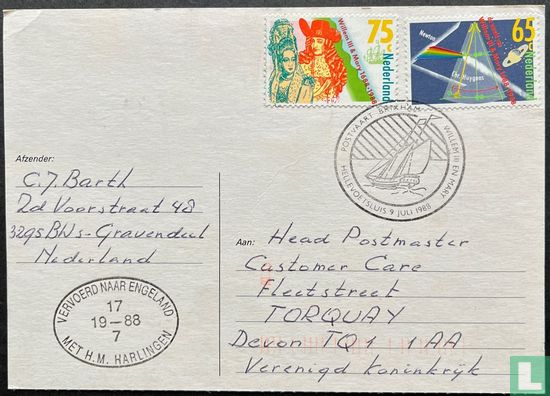 75 c
Willem III & Mary 1688-1988
Nederland
65 c
Newton
Chr. Huygens
Nederland
POSTVAART BRIXHAM
WILLEM III EN MARY
HELLEVOETSLUIS 9 JULI 1988
Afzender:
C.J. Barth
2d Voorstraat 48
3295 BW s-Gravendeel
Nederland
VERVOERD NAAR ENGELAND
17
19-88
7
MET H.M. HARLINGEN
Aan:
Head Postmaster
Customer Care
Fleetstreet
TORQUAY
Devon TQ1 1AA
Verenigd Koninkrijk
Catawiki